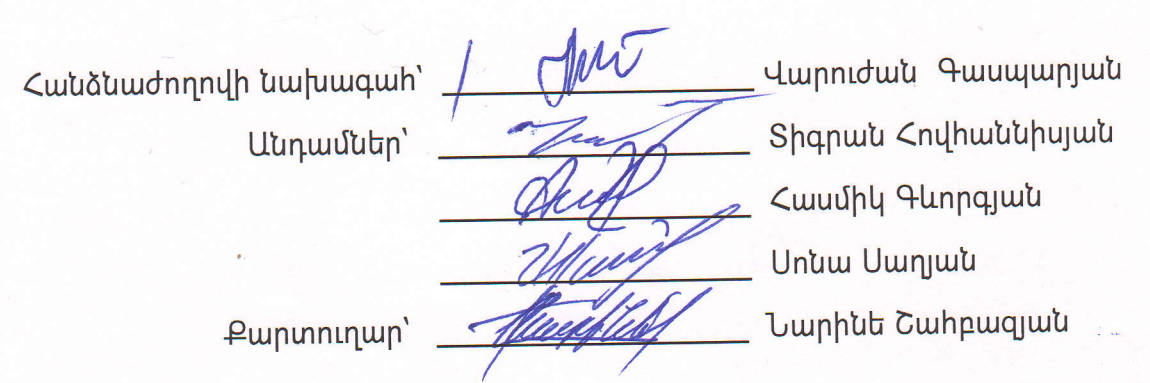 Հանձնաժողովի նախագահ՝ Վարուժան Գասպարյան
Անդամներ՝ Տիգրան Հովհաննիսյան
Հասմիկ Գևորգյան
Սոնա Սաղյան
Քարտուղար՝ Նարինե Շահբազյան